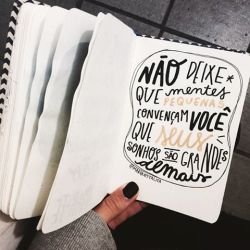 NÃO DEIXE
QUE mentes
PEQUENAS
CONVENÇAM VOCÊ
QUE seus
SONHOS SÃO GRANDES
demais